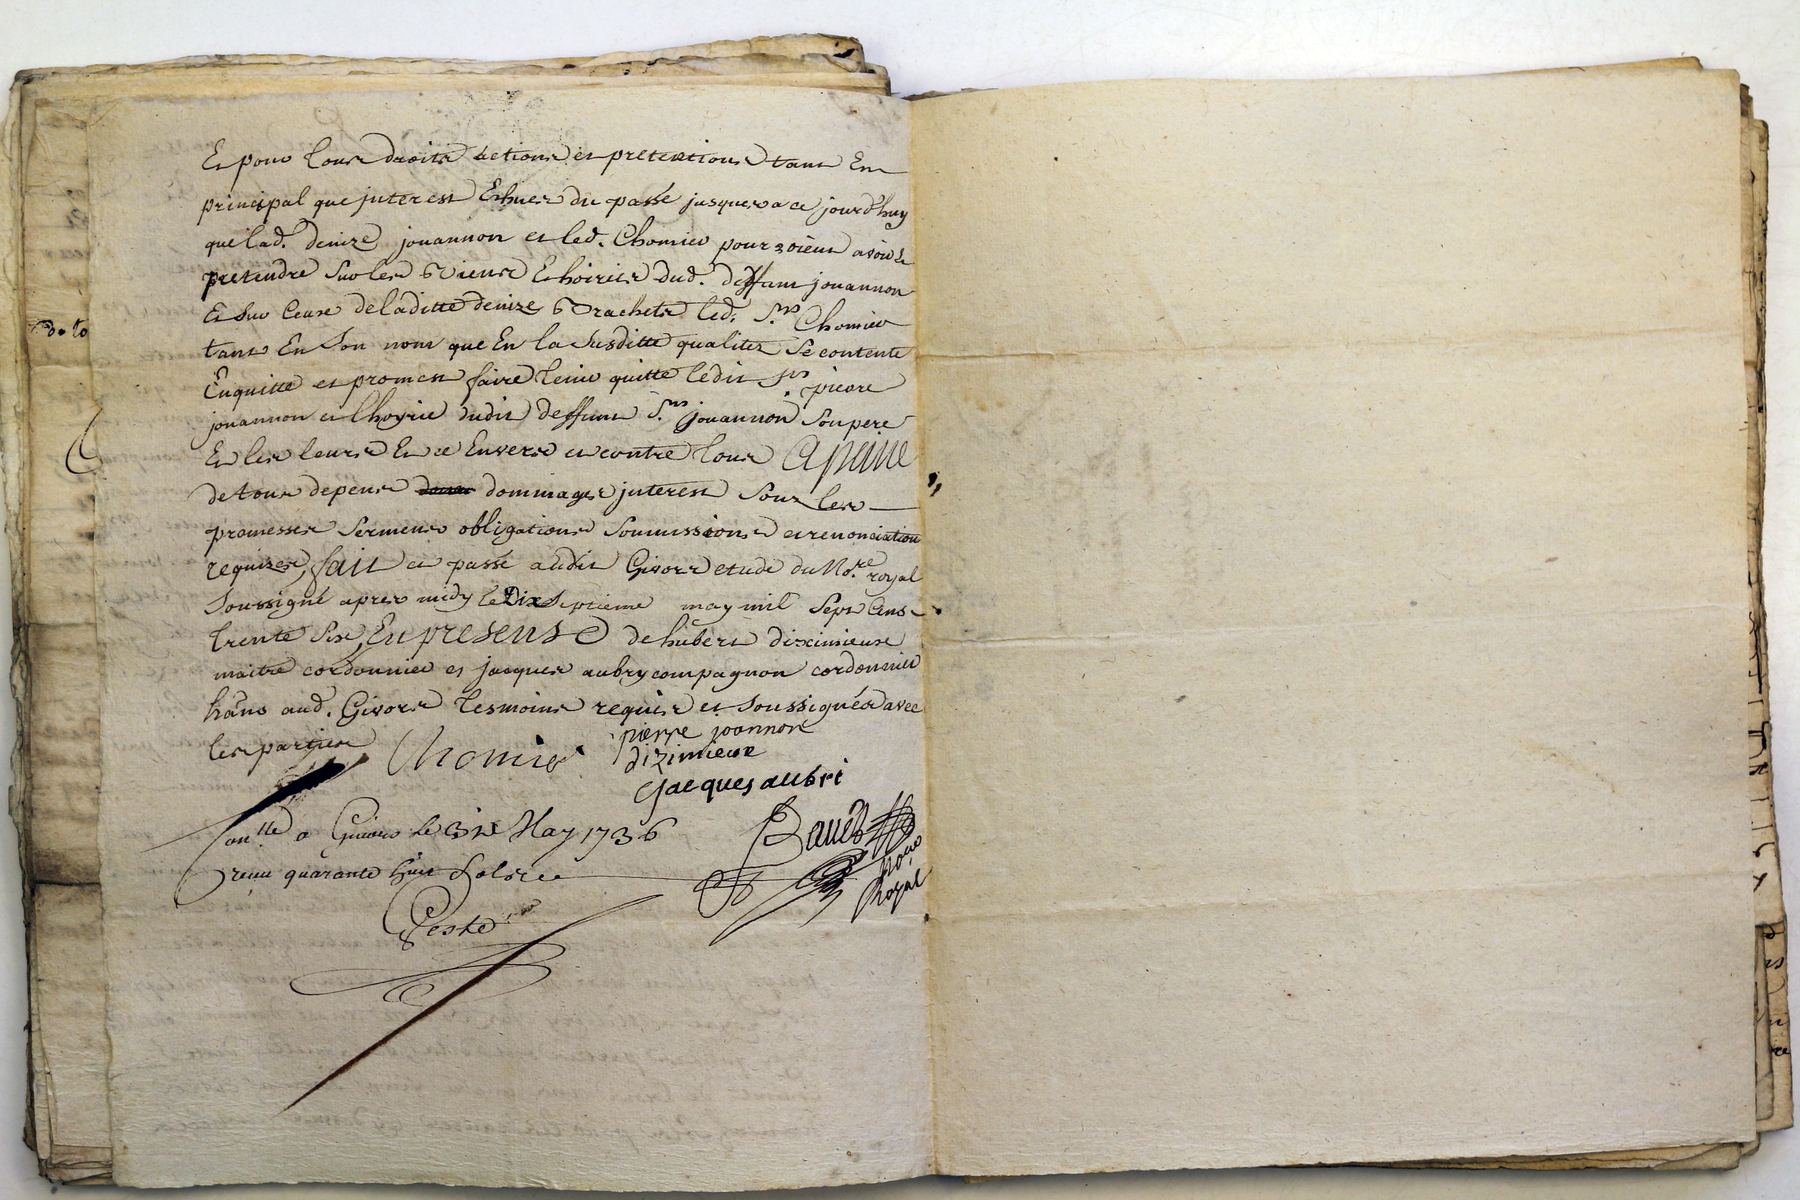 Et pour tous droits actions et pretentions tant En
principal que interest Eshues du passé jusques a ce jourd'huy
que lad. denize jouannon et led. Chomier pourroient avoir et
pretendre sur les Biens Et hoiries dud. deffunt jouannon
Et sur Ceux de laditte denize Brachet led. Sr. Chomier
tant En Son nom que En la susditte qualitez Se contente
En quitte et promest faire tenir quitte ledit Sr. pierre
jouannon et lhoyrie dudit deffunt Sr. jouannon Son pere
Et les leurs Et ce Envers et contre tous A peine
de tous depens dommages interest Sous les
promesses Serments obligations Soumissions et renonciation
requises, fait et passé audit Givors etude du No.re royal
Soussigné apres midy le Dix Septieme may mil Sept Cens
trente Six, En presense de hubert diximieux
maitre cordonnier et jacques aubry compagnon cordonnier
hãns aud. Givors tesmoins requis et Soussignés avec
les parties Chomier pierre joannon
dizimieux
Jacques aubri
Con.lle a Givors le 31e May 1736
reçu quarante huit Sols
Notre
Royal